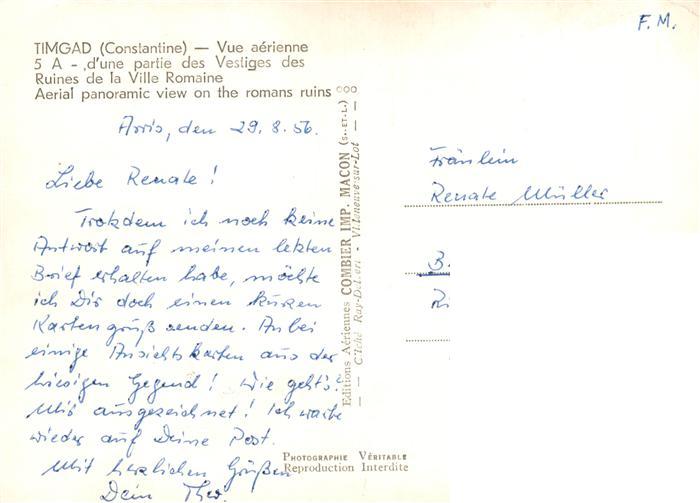 F. M.
TIMGAD (Constantine) — Vue aérienne
5 A - d'une partie des Vestiges des
Ruines de la Ville Romaine
Aerial panoramic view on the romans ruins
Arris, den 29. 8. 56.
Liebe Renate!
Trotzdem ich noch keine
Antwort auf meinen letzten
Brief erhalten habe, möchte
ich Dir doch einen kurzen
Kartengruß senden. Anbei
einige Ansichtskarten aus der
hiesigen Gegend! Wie geht's?
Mir ausgezeichnet! Ich warte
wieder auf Deine Post.
Mit herzlichen Grüßen
Dein Theo.
Editions Aériennes COMBIER IMP. MACON (S.-ET-L.)
Cliché Ray-Delvert - Villeneuve-sur-Lot
PHOTOGRAPHIE VÉRITABLE
Reproduction Interdite
Fräulein
Renate Müller
B.